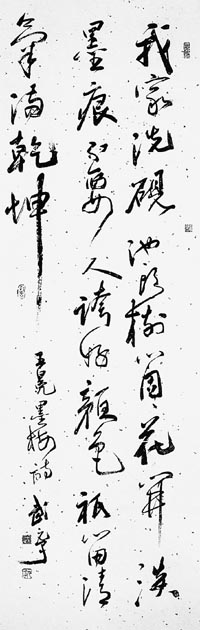 我家洗硯池頭樹箇々花開淡
墨痕不要人誇好顏色祇留清
氣滿乾坤
王冕墨梅詩 武